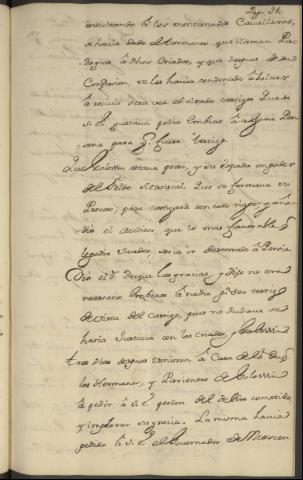 Pag. 31.
insultando â los mencionados Cavalleros,
se havia dado el tormento que llaman Pa-
dogua â dhos Criados, y que despues de su
Confesion, se les havia condenado â bolver
â recivir otra vez el citado castigo: Que si
S. E. gustava podia embiar â alguna Per-
sona para q.e fuese testigo.
Que Golossin estava preso, y su espada en poder
del Feldt Mariscal: Que se formava su
Proceso; para castigarle con todo rigor; y aña-
dió el Auditor, que lo mas favorable q.e
le podia suceder, seria ser desterrado â
Dio el S.r Duque las gracias, y dijo no era
necesario embiase â nadie p.a ser testigo
de vista del castigo, pues no dudava se
haria Justicia con los criados, y Golossin
tres dias despues vinieron â Casa de S. E.
los Hermanos, y Parientes de Golossin
â pedir â S. E. perdon del delito cometido,
y implorar su gracia. La misma havia
pedido â S. E. el Governador de Moscou